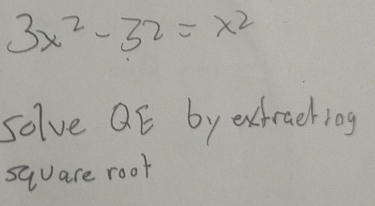 3x² - 32 = x²
solve QE by extracting
square root